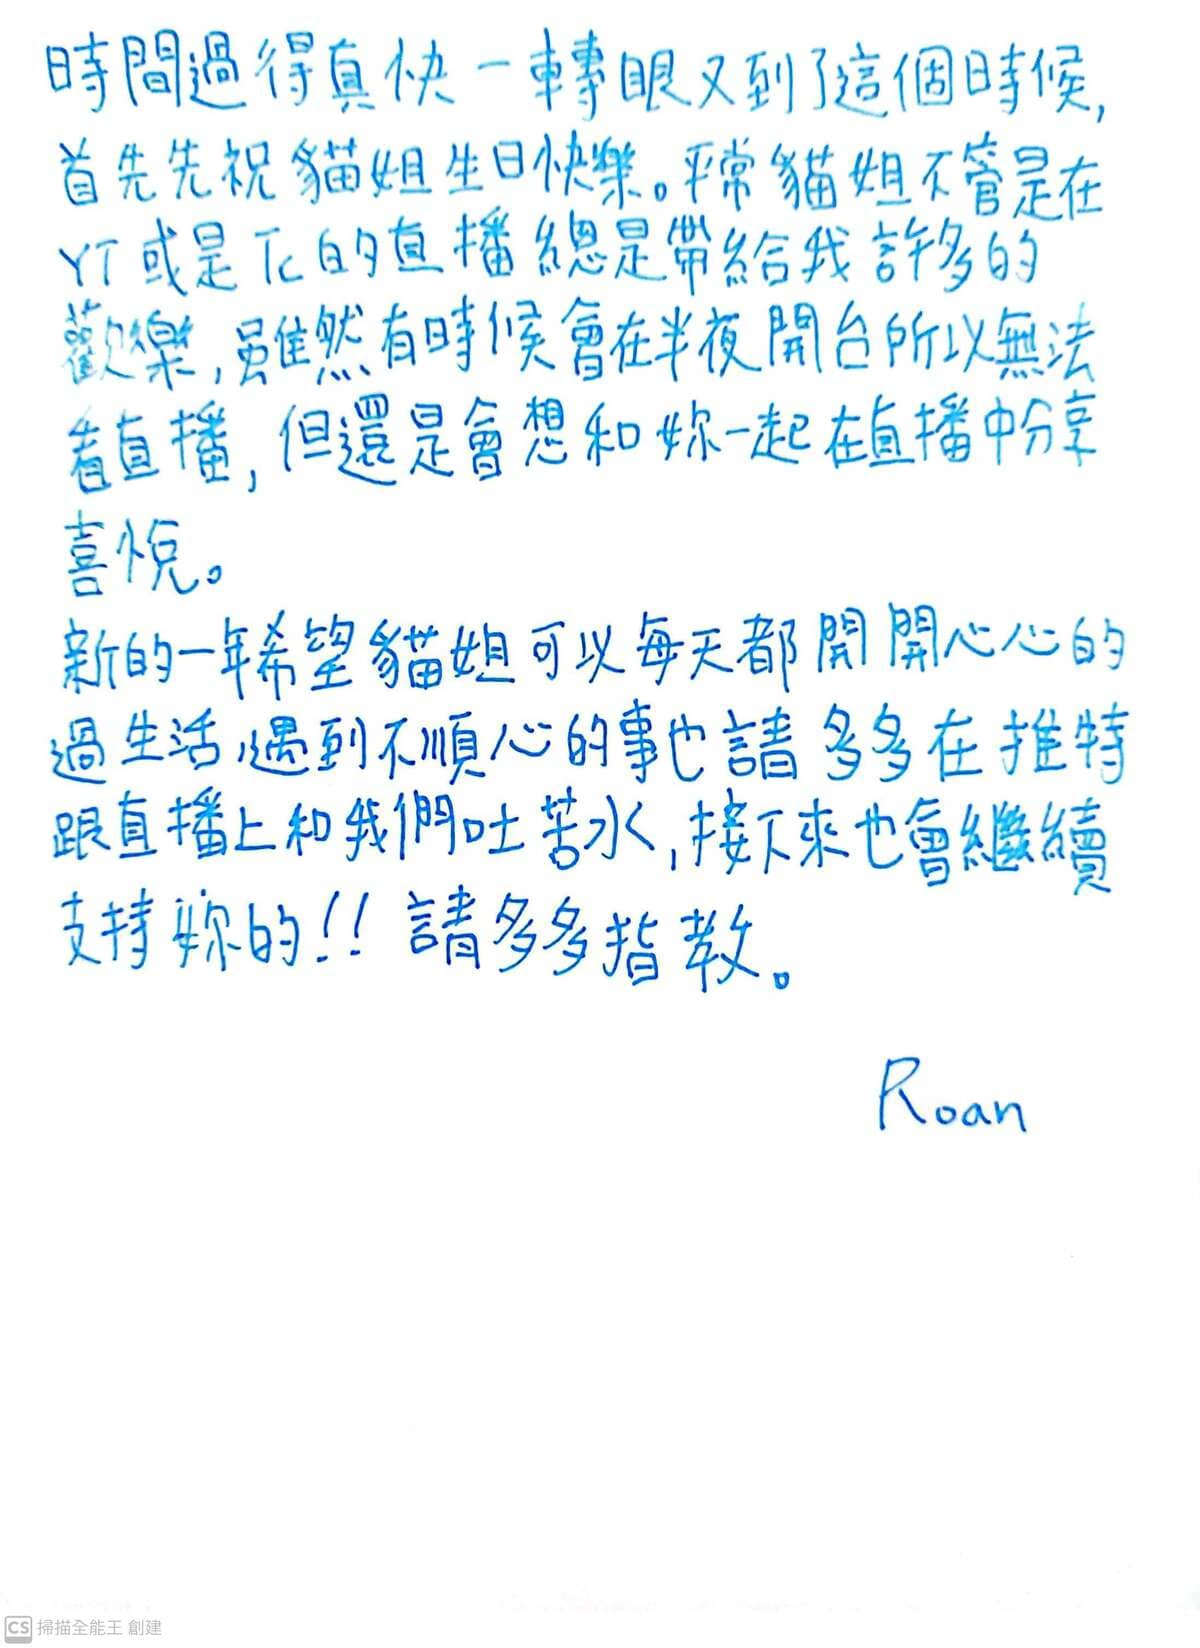 時間過得真快一轉眼又到了這個時候,
首先先祝貓姐生日快樂。平常貓姐不管是在
YT或是Tc的直播總是帶給我許多的
歡樂,雖然有時候會在半夜開台所以無法
看直播,但還是會想和妳一起在直播中分享
喜悅。
新的一年希望貓姐可以每天都開開心心的
過生活,遇到不順心的事也請多多在推特
跟直播上和我們吐苦水,接下來也會繼續
支持妳的!!請多多指教。
Roan
CS 掃描全能王 創建